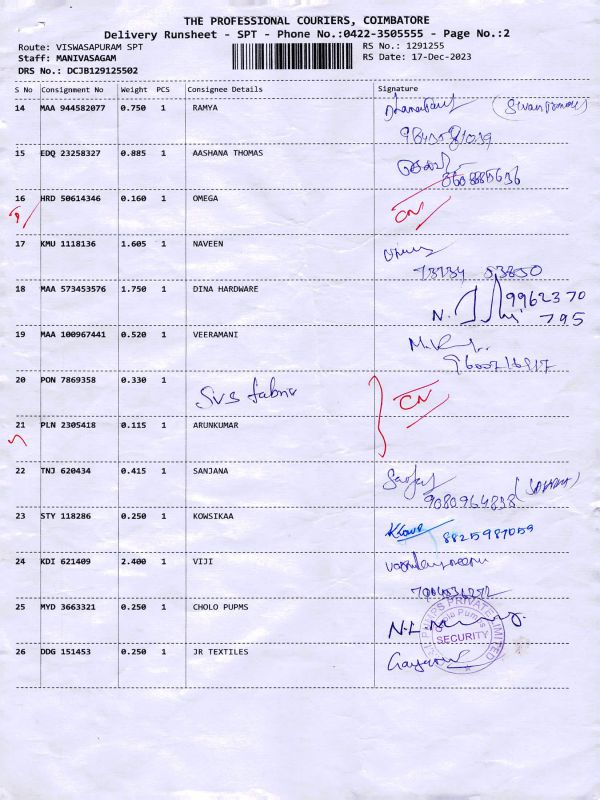 THE PROFESSIONAL COURIERS, COIMBATORE
Delivery Runsheet - SPT - Phone No.:0422-3505555 - Page No.:2
Route: VISWASAPURAM SPT RS No.: 1291255
Staff: MANIVASAGAM RS Date: 17-Dec-2023
DRS No.: DCJB129125502
S No Consignment No Weight PCS Consignee Details Signature
14 MAA 944582077 0.750 1 RAMYA
15 EDQ 23258327 0.885 1 AASHANA THOMAS
8608885636
16 HRD 50614346 0.160 1 OMEGA CN
17 KMU 1118136 1.605 1 NAVEEN
73734 53850
18 MAA 573453576 1.750 1 DINA HARDWARE 9962370
N. 795
19 MAA 100967441 0.520 1 VEERAMANI
20 PON 7869358 0.330 1 SVS fabric CN
21 PLN 2305418 0.115 1 ARUNKUMAR
22 TNJ 620434 0.415 1 SANJANA
23 STY 118286 0.250 1 KOWSIKAA 8825987059
24 KDI 621409 2.400 1 VIJI
25 MYD 3663321 0.250 1 CHOLO PUPMS N.L
PRIVATE LIMITED
SECURITY
26 DDG 151453 0.250 1 JR TEXTILES